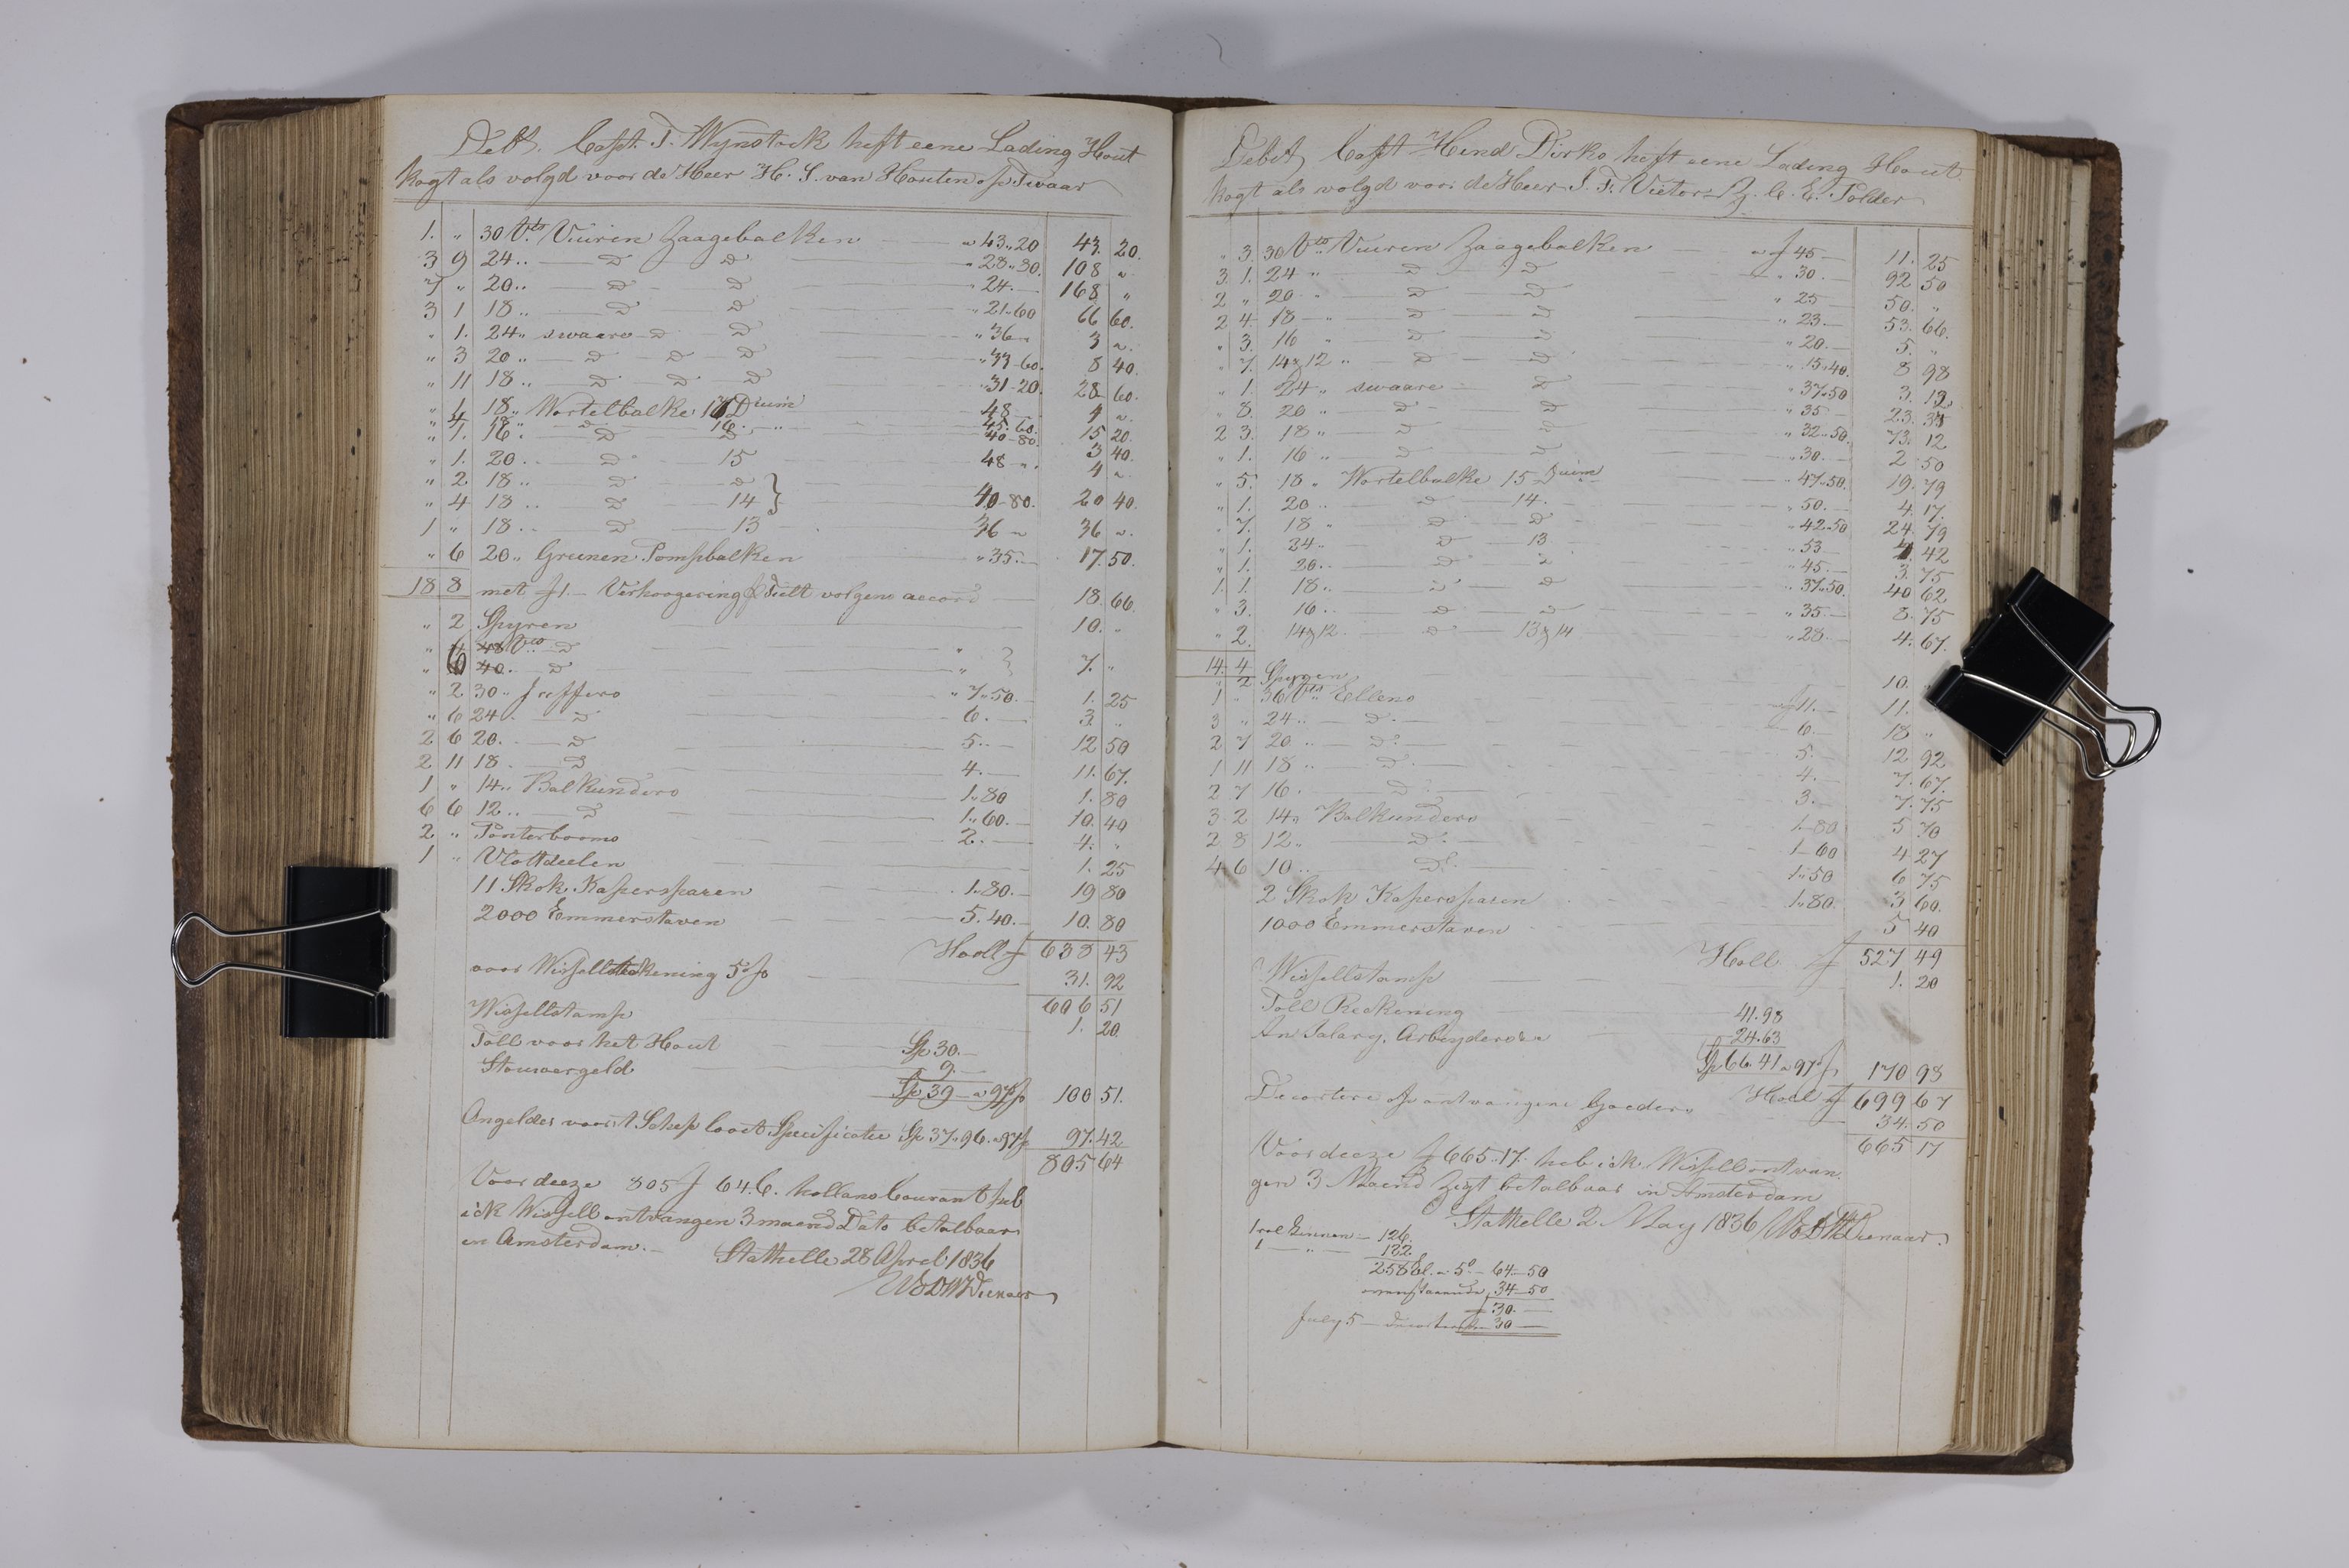 Debt. Capt. T. Wynstock heft eene Lading Hout
kogt als volgd voor de Heer H. S. van Houten op Swaar
1. " 30 Vts Vuiren Zaagebalken " 43"20 43. 20.
3 9 24 " D D " 28"80. 108 "
7 " 20 " D D " 24.— 168 "
3 1 18 " D D " 21"60 66 60.
" 1. 24 " swaare D D " 36 " 3 "
" 3 20 " D D D " 33-60. 8 40.
" 11 18 " D D D " 31-20. 28 60.
" 1 18 " Wortelbalke 17 Duim 48 — 4 "
" 4 18 " D 16. " 45. 60. 15 20.
" 1. 16. D D 40-80. 3 40.
" 1. 20 " D 15 48 " 4 "
" 2 18 " D D
" 4 18 " D 14 } 40-80. 20 40.
1 " 18 " D 13 36 " 36 "
" 6 20 " Greenen Pompbalken " 35.— 17. 50.
18 8 met f 1.— Verhoogering p Tielt volgens accord 18 66.
" 2 Spyren 10. "
48 Vts D "
" 6 40. D " } 7. "
" 2 30 " Juffers " 7"50. 1. 25
" 6 24. D 6.— 3. "
2 6 20. D 5.— 12 50
2 11 18. D 4.— 11. 67.
1 " 14 " Balkunders 1"80 1. 80
6 6 12 " D 1"60.— 10. 40
2 " Ponterbooms 2.— 4. "
1 " Vlottdeelen 1. 25
11 Skok Kapersparen 1"80.— 19 80
2000 Emmerstaven 5. 40.— 10. 80
Holl f 638 43
voor Wissellrekening 5 p% 31. 92
606 51
Wissellstamp 1. 20.
Toll voor het Hout Sp 30.—
Stouwergeld 9.—
Sp 39 — a 97 p 100 51.
Ongelder voor't Schep loout Specificatie Sp 37"96. a 97 p 97. 42
805 64
Voor deeze 805 f 64 C. hollans Courant heb
ick Wissell ontvangen 3 maend Dato betalbaar
in Amsterdam.—
Stathelle 28 April 1836
Debet, Captt Hend Dirks heft eene Lading Hout
kogt als volgd voor de Heer J. F. Vietor Z. C. E. Polder
" 3. 30 Vts Vuiren Zaagebalken " f 45 — 11. 25
3 1. 24 " D D " 30.— 92 50
2 " 20 " D D " 25 — 50. "
2 4. 18 " D D " 23.— 53. 66.
" 3. 16 " D D " 20.— 5. "
" 7. 14 & 12 " D D " 15"40. 8 98
" 1. 24 " swaare D " 37"50 3. 12
" 8. 20 " D D " 35 — 23. 33
2 3. 18 " D D " 32"50. 73. 12
" 1. 16 " D D " 30.— 2 50
" 5. 18 " Wortelbalke 15 Duim " 47"50. 19. 79
" 1. 20 " D 14. " 50.— 4. 17.
" 7. 18 " D D " 42"50 24. 79
" 1. 24 " D 13 " 53 — 4. 42
" 1. 20 " D D " 45.— 3. 75
1. 1. 18 " D D " 37"50. 40 62
" 3. 16 " D D " 35.— 8. 75
" 2. 14 & 12. D 13 & 14 " 28.— 4. 67.
14. 4
" 2 Spyren 10. "
1 " 36 Vts Ellens " f 11.— 11.
3 " 24 " D 6.— 18 "
2 7 20 " D 5. 12 92.
1 11 18 " D 4.— 7. 67.
2 7 16. D 3.— 7. 75
3 2 14 " Balkunders 1-80 5 70
2 8 12 " D 1-60 4 27
4 6 10 " D 1"50 6 75
2 Skok Kapersparen 1"80. 3 60.
1000 Emmerstaven 5 40
Holl f 527 49
Wissellstamp 1. 20
Toll Reckening 41. 98
An Salary, Arbeyders 24. 63
Sp 66. 41 a 97 p 170 98
Holl f 699 67
Decortere op ontvangene Goeder " 34. 50
665 17
Voor deeze f 665"17. heb ick Wissell ontvan
gen 3 Maend Zigt betalbaar in Amsterdam
Stathelle 2 May 1836
1 rol Linnen — 126.
1 — " — 132.
258 El. a 5 — 64—50
34—50
30.—
July 5 — 30 —